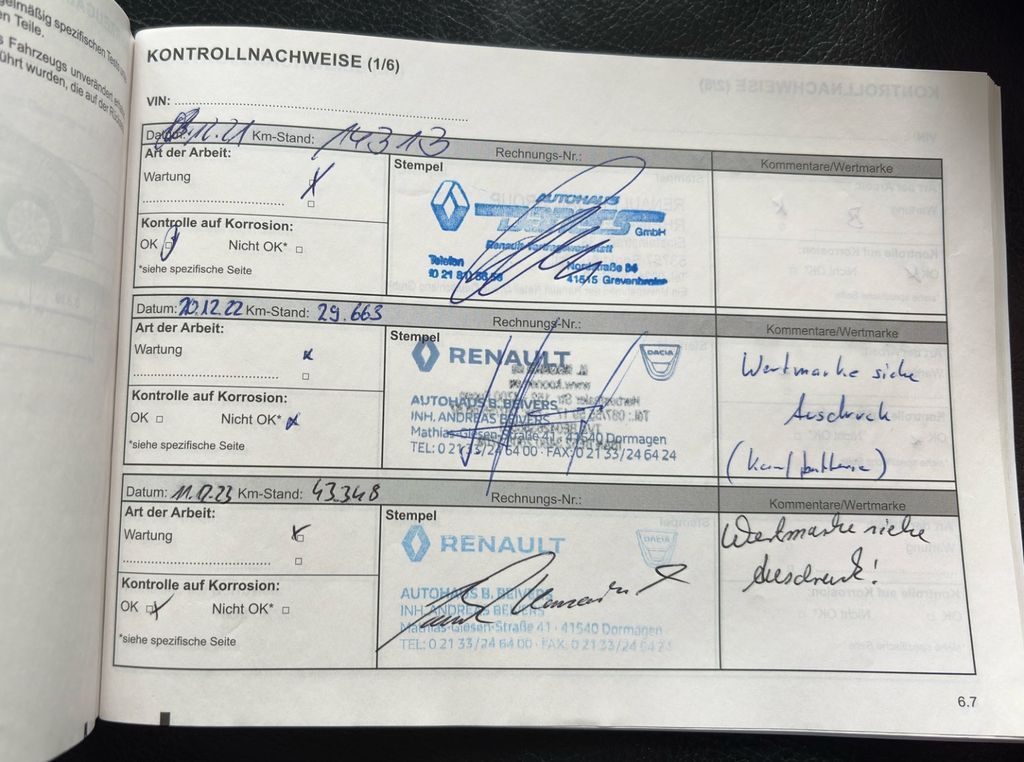 gelmäßig spezifischen
en Teile.
s Fahrzeugs unverändert
führt wurden, die auf der
KONTROLLNACHWEISE (1/6)
VIN:
Datum: 12.21 Km-Stand: 14313 Rechnungs-Nr.: Kommentare/Wertmarke
Art der Arbeit:
Stempel
Wartung
AUTOHAUS
GmbH
Kontrolle auf Korrosion:
Renault Vertragswerkstatt
OK Nicht OK*
Telefon Nordstraße
*siehe spezifische Seite
41515 Grevenbroich
Datum: 20.12.22 Km-Stand: 29.663 Rechnungs-Nr.: Kommentare/Wertmarke
Art der Arbeit:
Stempel
Wartung
RENAULT DACIA
Wertmarke siehe
Ausdruck
Kontrolle auf Korrosion:
AUTOHAUS B. BEIVERS
INH. ANDREAS BEIVERS
OK Nicht OK*
Mathias-Giesen-Straße 41 · 41540 Dormagen
*siehe spezifische Seite
TEL: 0 21 33/24 64 00 · FAX: 0 21 33/24 64 24
Datum: 11.12.23 Km-Stand: 43.348 Rechnungs-Nr.: Kommentare/Wertmarke
Art der Arbeit:
Stempel
Wartung
RENAULT DACIA
Wertmarke siehe
Ausdruck!
Kontrolle auf Korrosion:
AUTOHAUS B. BEIVERS
INH. ANDREAS BEIVERS
OK Nicht OK*
Mathias-Giesen-Straße 41 · 41540 Dormagen
*siehe spezifische Seite
TEL: 0 21 33/24 64 00 · FAX: 0 21 33/24 64 24
6.7